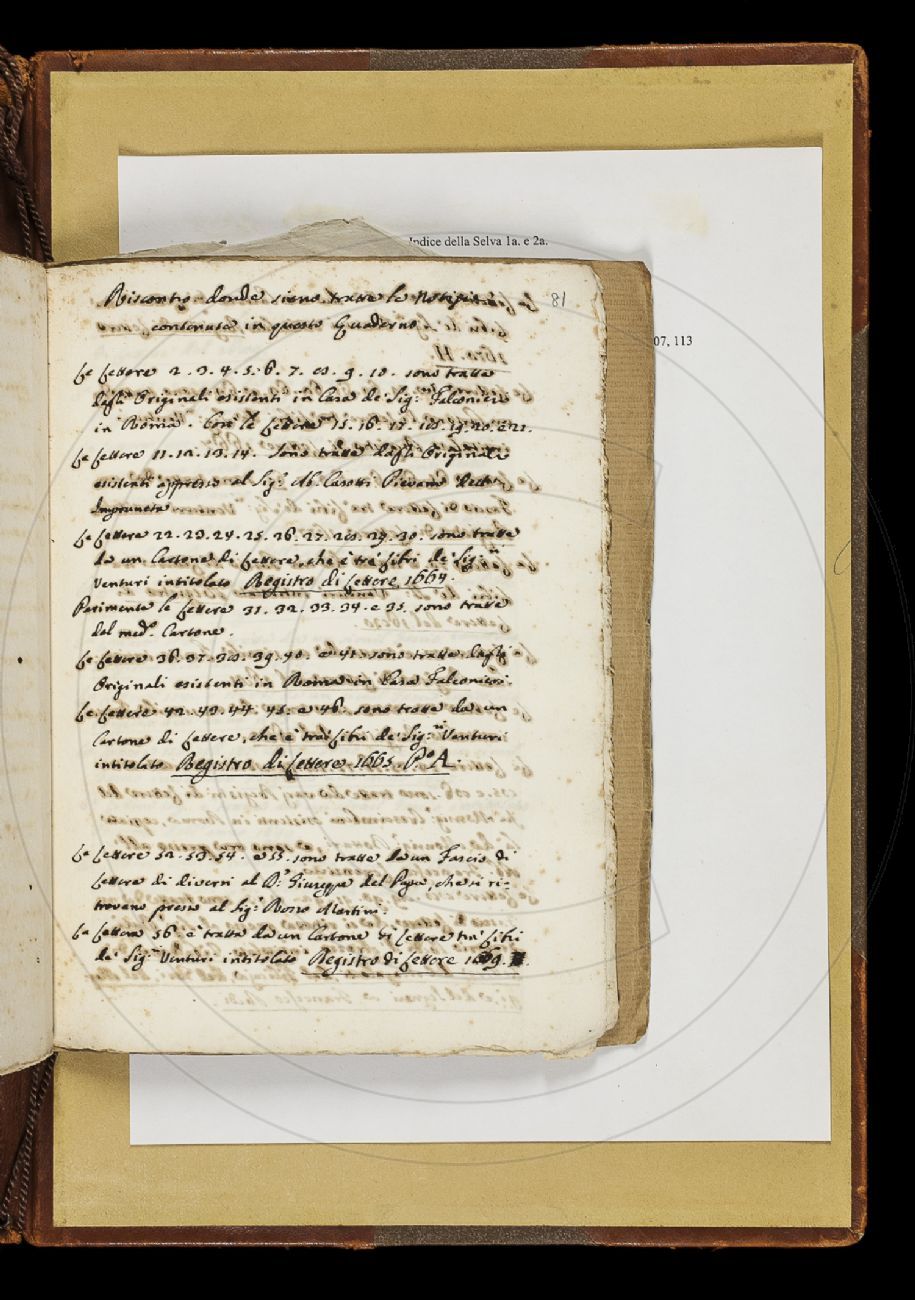 Indice della Selva 1a. e 2a.
07, 113
81
Riscontro donde sieno tratte le Notizie
contenute in questo Quaderno.
Le Lettere 2. 3. 4. 5. 6. 7. 8. 9. 10. sono tratte
dagli Originali esistenti in Casa de' Sig.ri Falconieri
in Roma. Così le Lettere 15. 16. 17. 18. 19. 20. e 21.
Le Lettere 11. 12. 13. 14. sono tratte dagli Originali
esistenti appresso al Sig.r Ab. Casotti Pievano dell'
Impruneta
Le Lettere 22. 23. 24. 25. 26. 27. 28. 29. 30. sono tratte
da un Cartone di Lettere, che è tra' libri de' Sig.ri
Venturi intitolato Registro di Lettere 1664.
Parimente le Lettere 31. 32. 33. 34. e 35. sono tratte
del med.o Cartone.
Le Lettere 36. 37. 38. 39. 40. e 41. sono tratte dagli
Originali esistenti in Roma in Casa Falconieri.
Le Lettere 42. 43. 44. 45. e 46. sono tratte da un
Cartone di Lettere, che è trai libri de' Sig.ri Venturi
intitolato Registro di Lettere 1665. P.o A.
Le Lettere 52. 53. 54. e 55. sono tratte da un Fascio di
Lettere di diversi al D.r Giuseppe del Papa, che si ri-
trovano presso al Sig.r Rosso Martini.
La Lettera 56. è tratta da un Cartone di Lettere tra' libri
de' Sig.ri Venturi intitolato Registro di Lettere